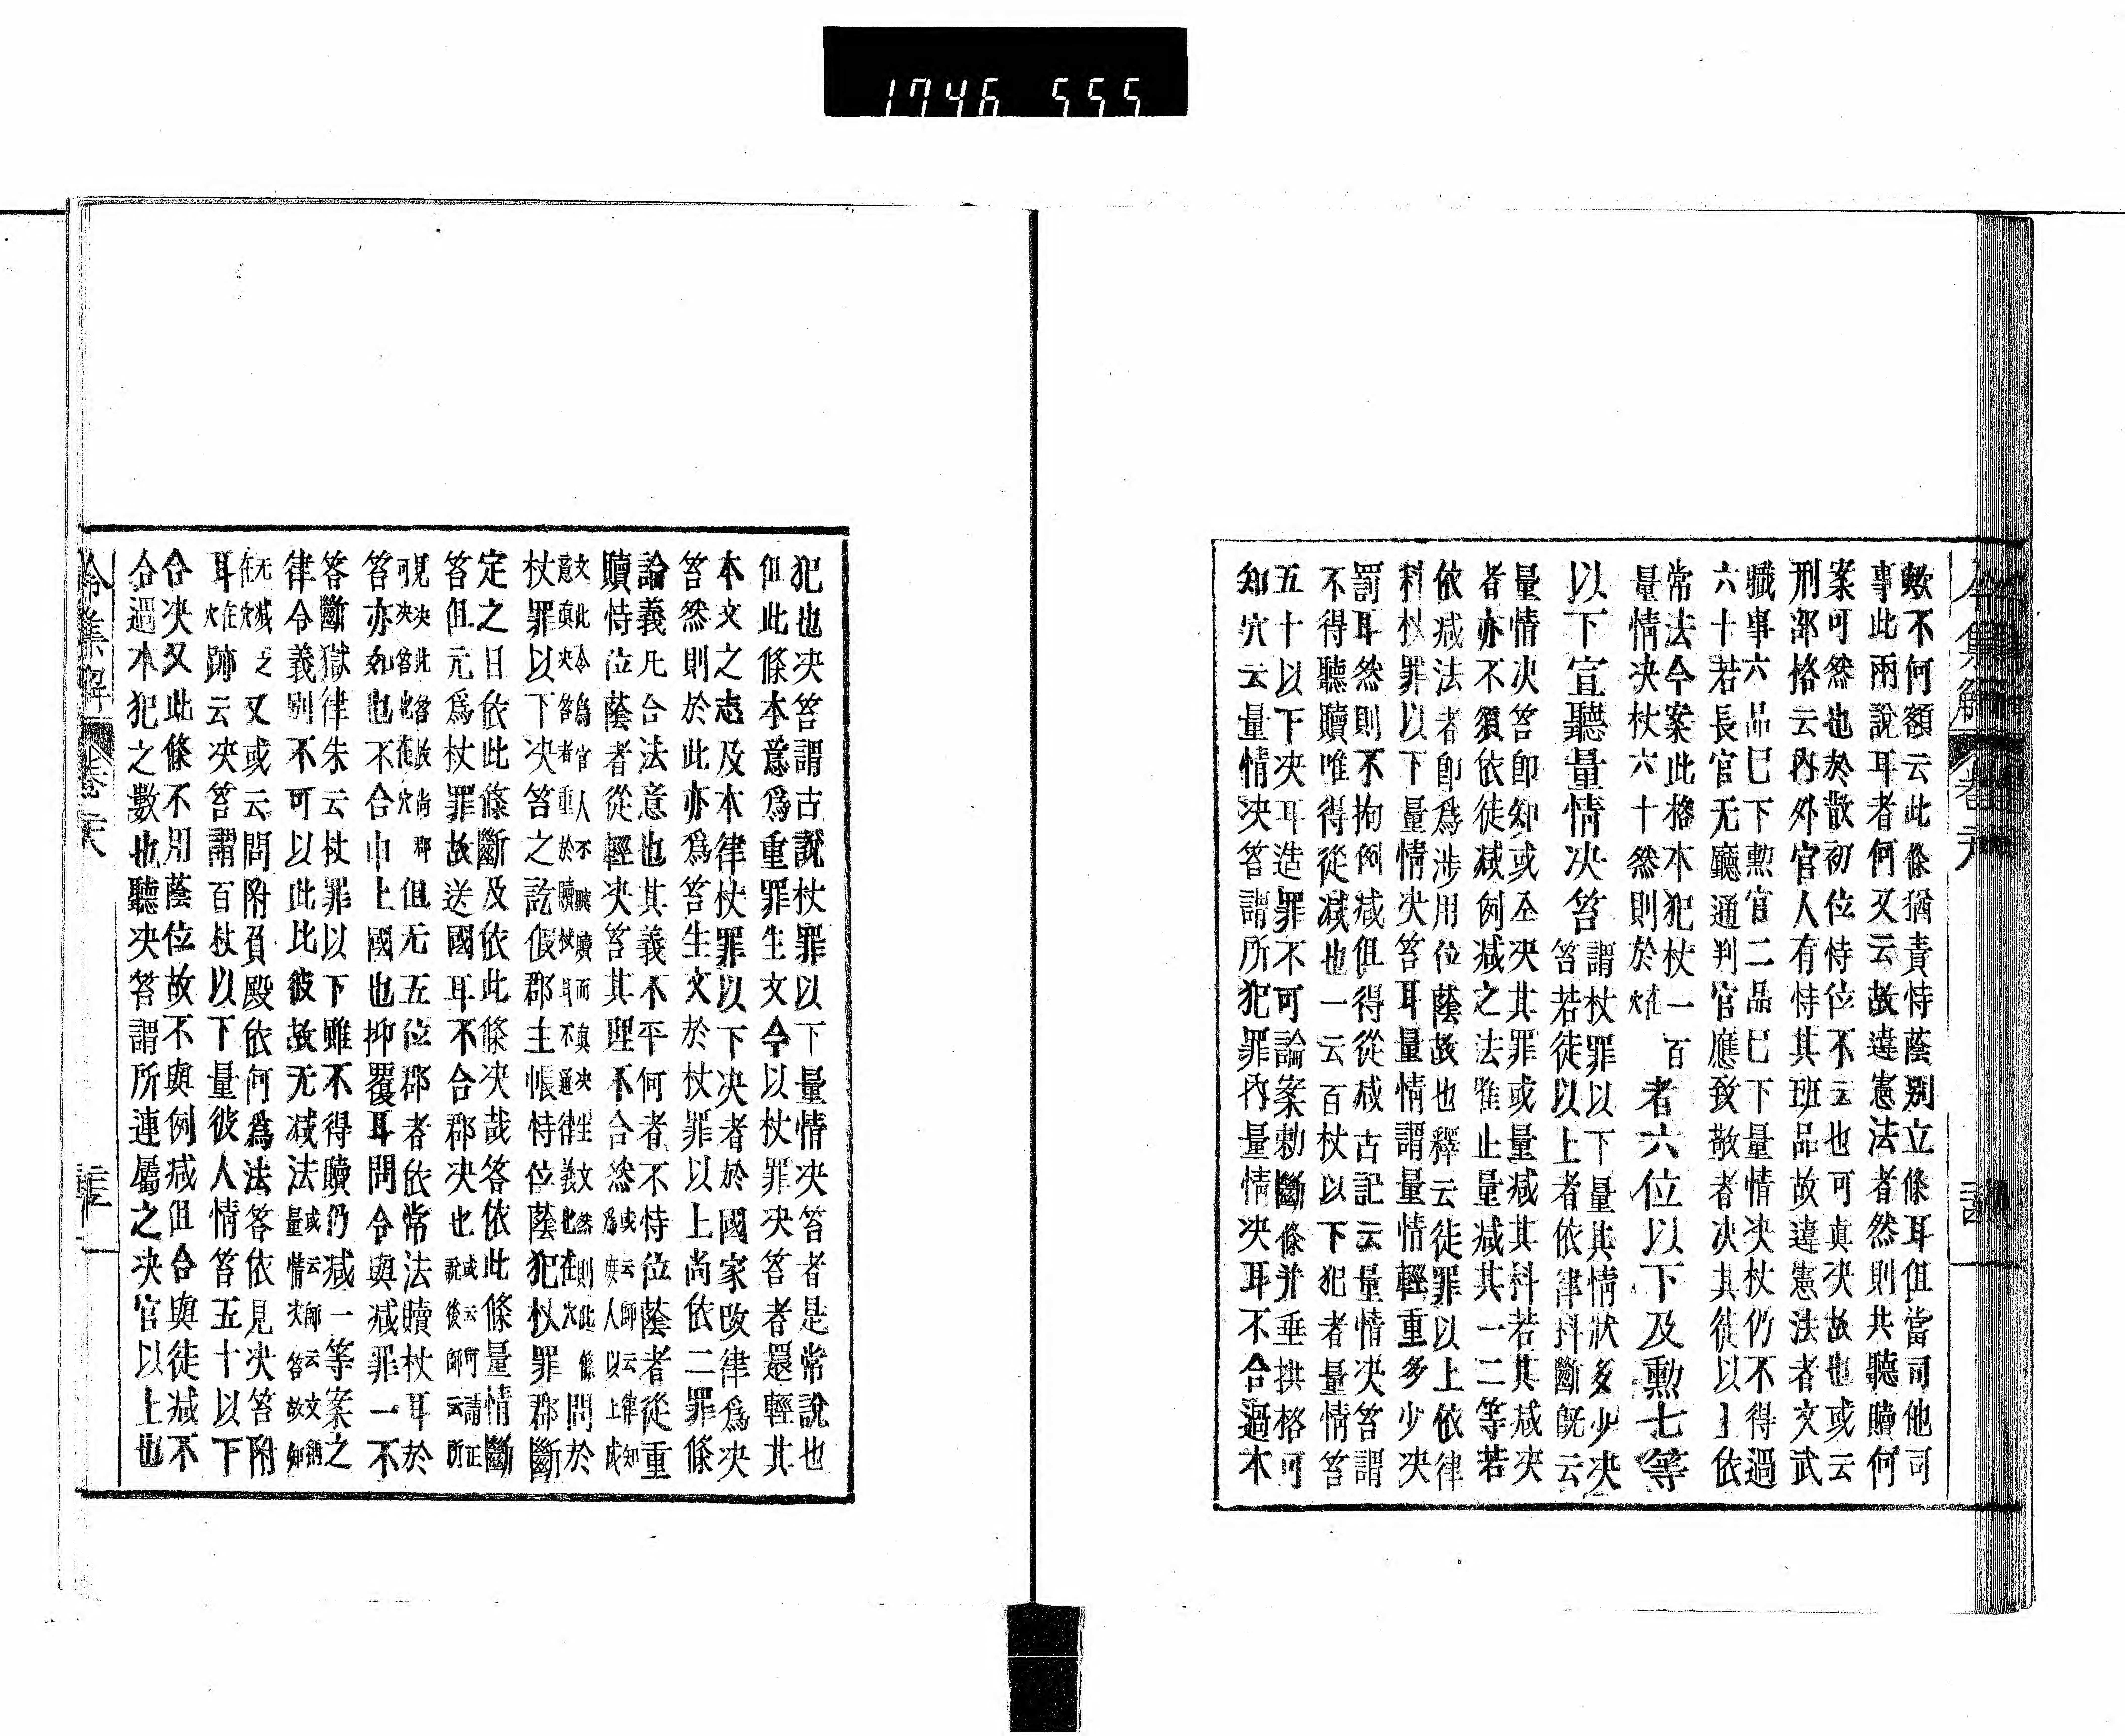 1746 555
欵不何額云此條猶責恃蔭別立條耳但當司他司
事此兩說耳者何又云故違憲法者然則共聽贖何
案可然也於散初位恃位不云也可真决故也或云
刑部格云內外官人有恃其班品故違憲法者文武
職事六品已下勲官二品已下量情决杖仍不得過
六十若長官无廳通判官應致敬者决其徒以上依
常法今案此格本犯杖一百
量情决杖六十然則於在穴
者六位以下及勲七等
以下宣聽量情决笞
謂杖罪以下量其情狀多少决
笞若徒以上者依律科斷旣云
量情决笞卽知或全决其罪或量减其科若其减决
者亦不須依徒减例减之法唯止量减其一二等若
依减法者卽爲涉用位蔭故也釋云徒罪以上依律
科杖罪以下量情决笞耳量情謂量情輕重多少决
罰耳然則不拘例减但得從减古記云量情决笞謂
不得聽贖唯得從减也一云百杖以下犯者量情笞
五十以下决耳造罪不可論案勅斷條并垂拱格可
知穴云量情决笞謂所犯罪內量情决耳不合過本
令集解
卷 
犯也决笞謂古說杖罪以下量情决笞者是常說也
但此條本意爲重罪生文令以杖罪决笞者還輕其
本文之志及本律杖罪以下决者於國家改律爲决
笞然則於此亦爲笞生文於杖罪以上尚依二罪條
論義凡合法意也其義不平何者不恃位蔭者從重
贖恃位蔭者從輕决笞其理不合然
或云師云律知
爲庻人以上成
文此令爲官人不聽贖而真决生文然則此條問於
意真决笞者重於贖杖耳不通律義也在穴
杖罪以下决笞之訖假郡主帳恃位蔭犯杖罪郡斷
定之日依此條斷及依此條决哉答依此條量情斷
笞但元爲杖罪故送國耳不合郡决也
或云問請正
說後師云所
見决此笞故尚郡
可决笞也在穴
但无五位郡者依常法贖杖耳於
笞亦如也不合申上國也抑覆耳問令與减罪一不
答斷獄律朱云杖罪以下雖不得贖仍减一等案之
律令義別不可以此比彼故无减法
或云師云文稱
量情决笞故知
无减之
在穴
又或云問附負殿依何爲法答依見决笞附
耳在穴
跡云决笞謂百杖以下量彼人情笞五十以下
合决又此條不別蔭位故不與例减但合與徒减不
合過本犯之數也聽决笞謂所連屬之决官以上也
令集解